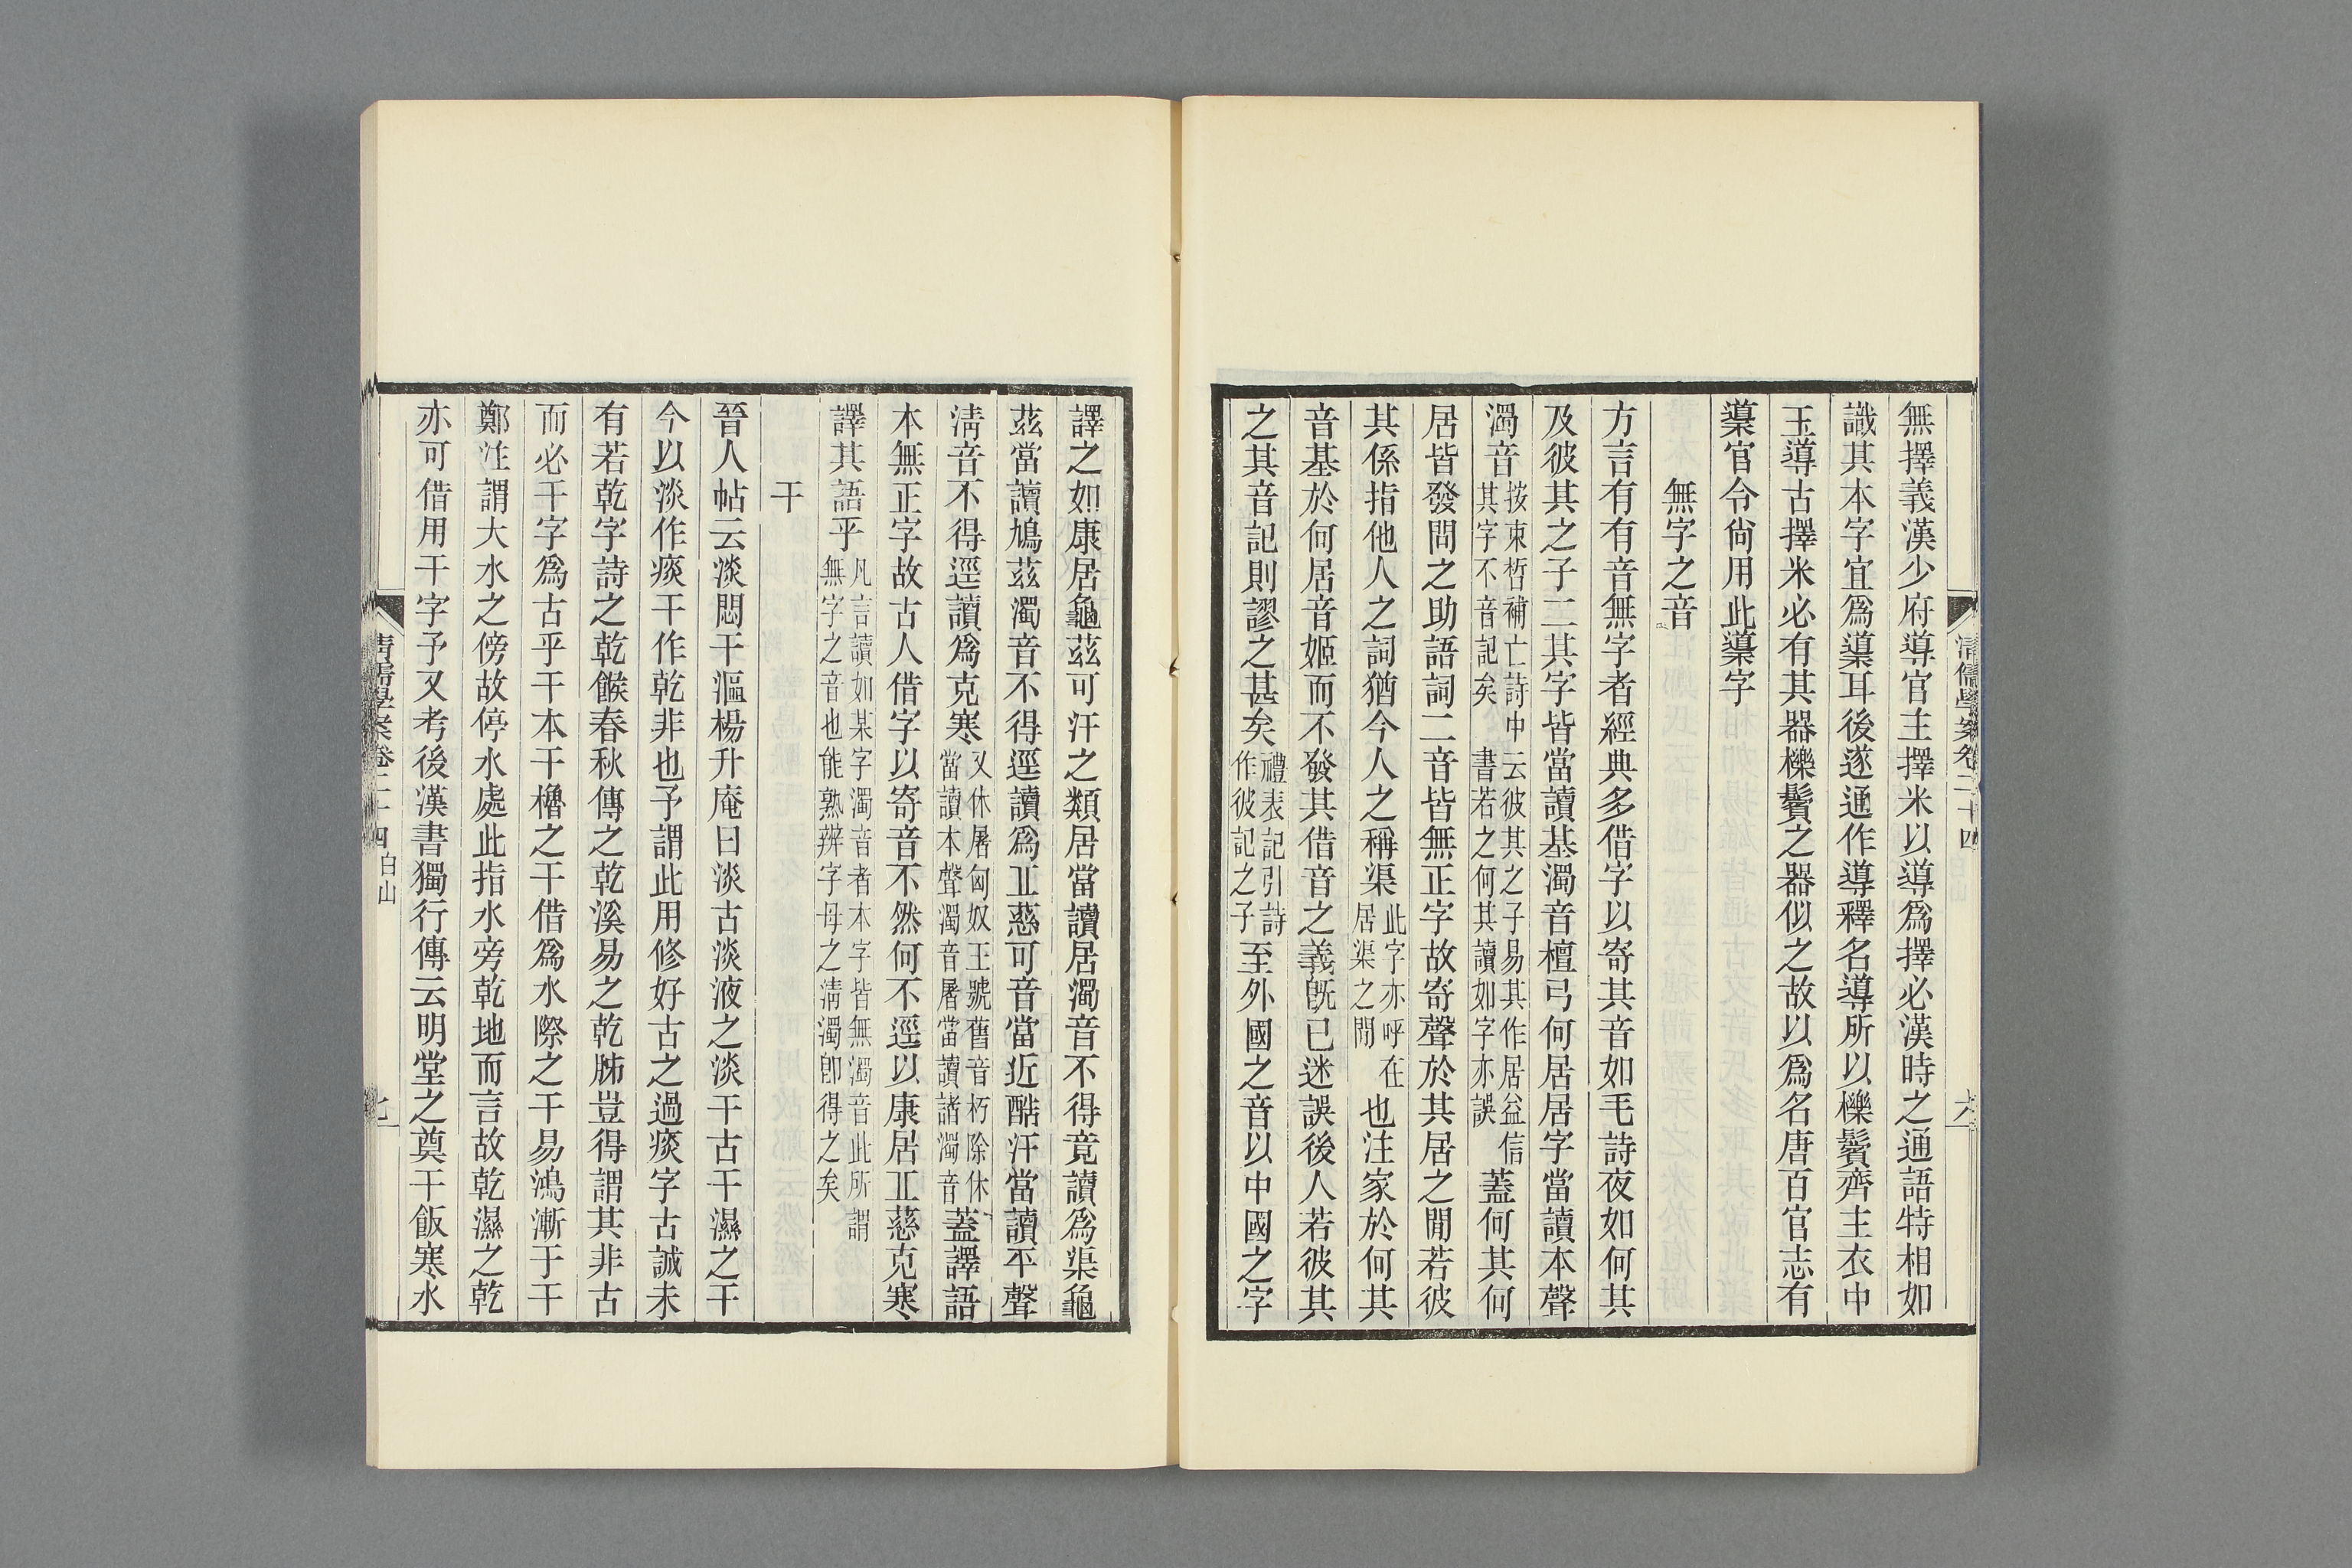 無擇義漢少府導官主擇米以導爲擇必漢時之通語特相如
識其本字宜爲䆃耳後遂通作導釋名導所以櫟鬢齊主衣中
玉導古擇米必有其器櫟鬢之器似之故以爲名唐百官志有
䆃官令尙用此䆃字
無字之音
方言有有音無字者經典多借字以寄其音如毛詩夜如何其
及彼其之子二其字皆當讀基濁音檀弓何居居字當讀本聲
濁音按束晳補亡詩中云彼其之子易其作居益信其字不音記矣書若之何其讀如字亦誤蓋何其何
居皆發問之助語詞二音皆無正字故寄聲於其居之閒若彼
其係指他人之詞猶今人之稱渠此字亦呼在居渠之閒也注家於何其
音基於何居音姬而不發其借音之義旣已迷誤後人若彼其
之其音記則謬之甚矣禮表記引詩作彼記之子至外國之音以中國之字
清儒學案卷二十四
六
譯之如康居龜茲可汗之類居當讀居濁音不得竟讀爲渠龜
茲當讀鳩茲濁音不得逕讀爲㐀慈可音當近酷汗當讀平聲
淸音不得逕讀爲克寒又休屠匈奴王號舊音朽除休當讀本聲濁音屠當讀諸濁音蓋譯語
本無正字故古人借字以寄音不然何不逕以康居㐀慈克寒
譯其語乎凡言讀如某字濁音者本字皆無濁音此所謂無字之音也能熟辨字母之淸濁卽得之矣
干
晉人帖云淡悶干漚楊升庵曰淡古淡液之淡干古干濕之干
今以淡作痰干作乾非也予謂此用修好古之過痰字古誠未
有若乾字詩之乾餱春秋傳之乾溪易之乾胏豈得謂其非古
而必干字爲古乎干本干櫓之干借爲水際之干易鴻漸于干
鄭注謂大水之傍故停水處此指水旁乾地而言故乾濕之乾
亦可借用干字予又考後漢書獨行傳云明堂之奠干飯寒水
清儒學案卷二十四
白山
七